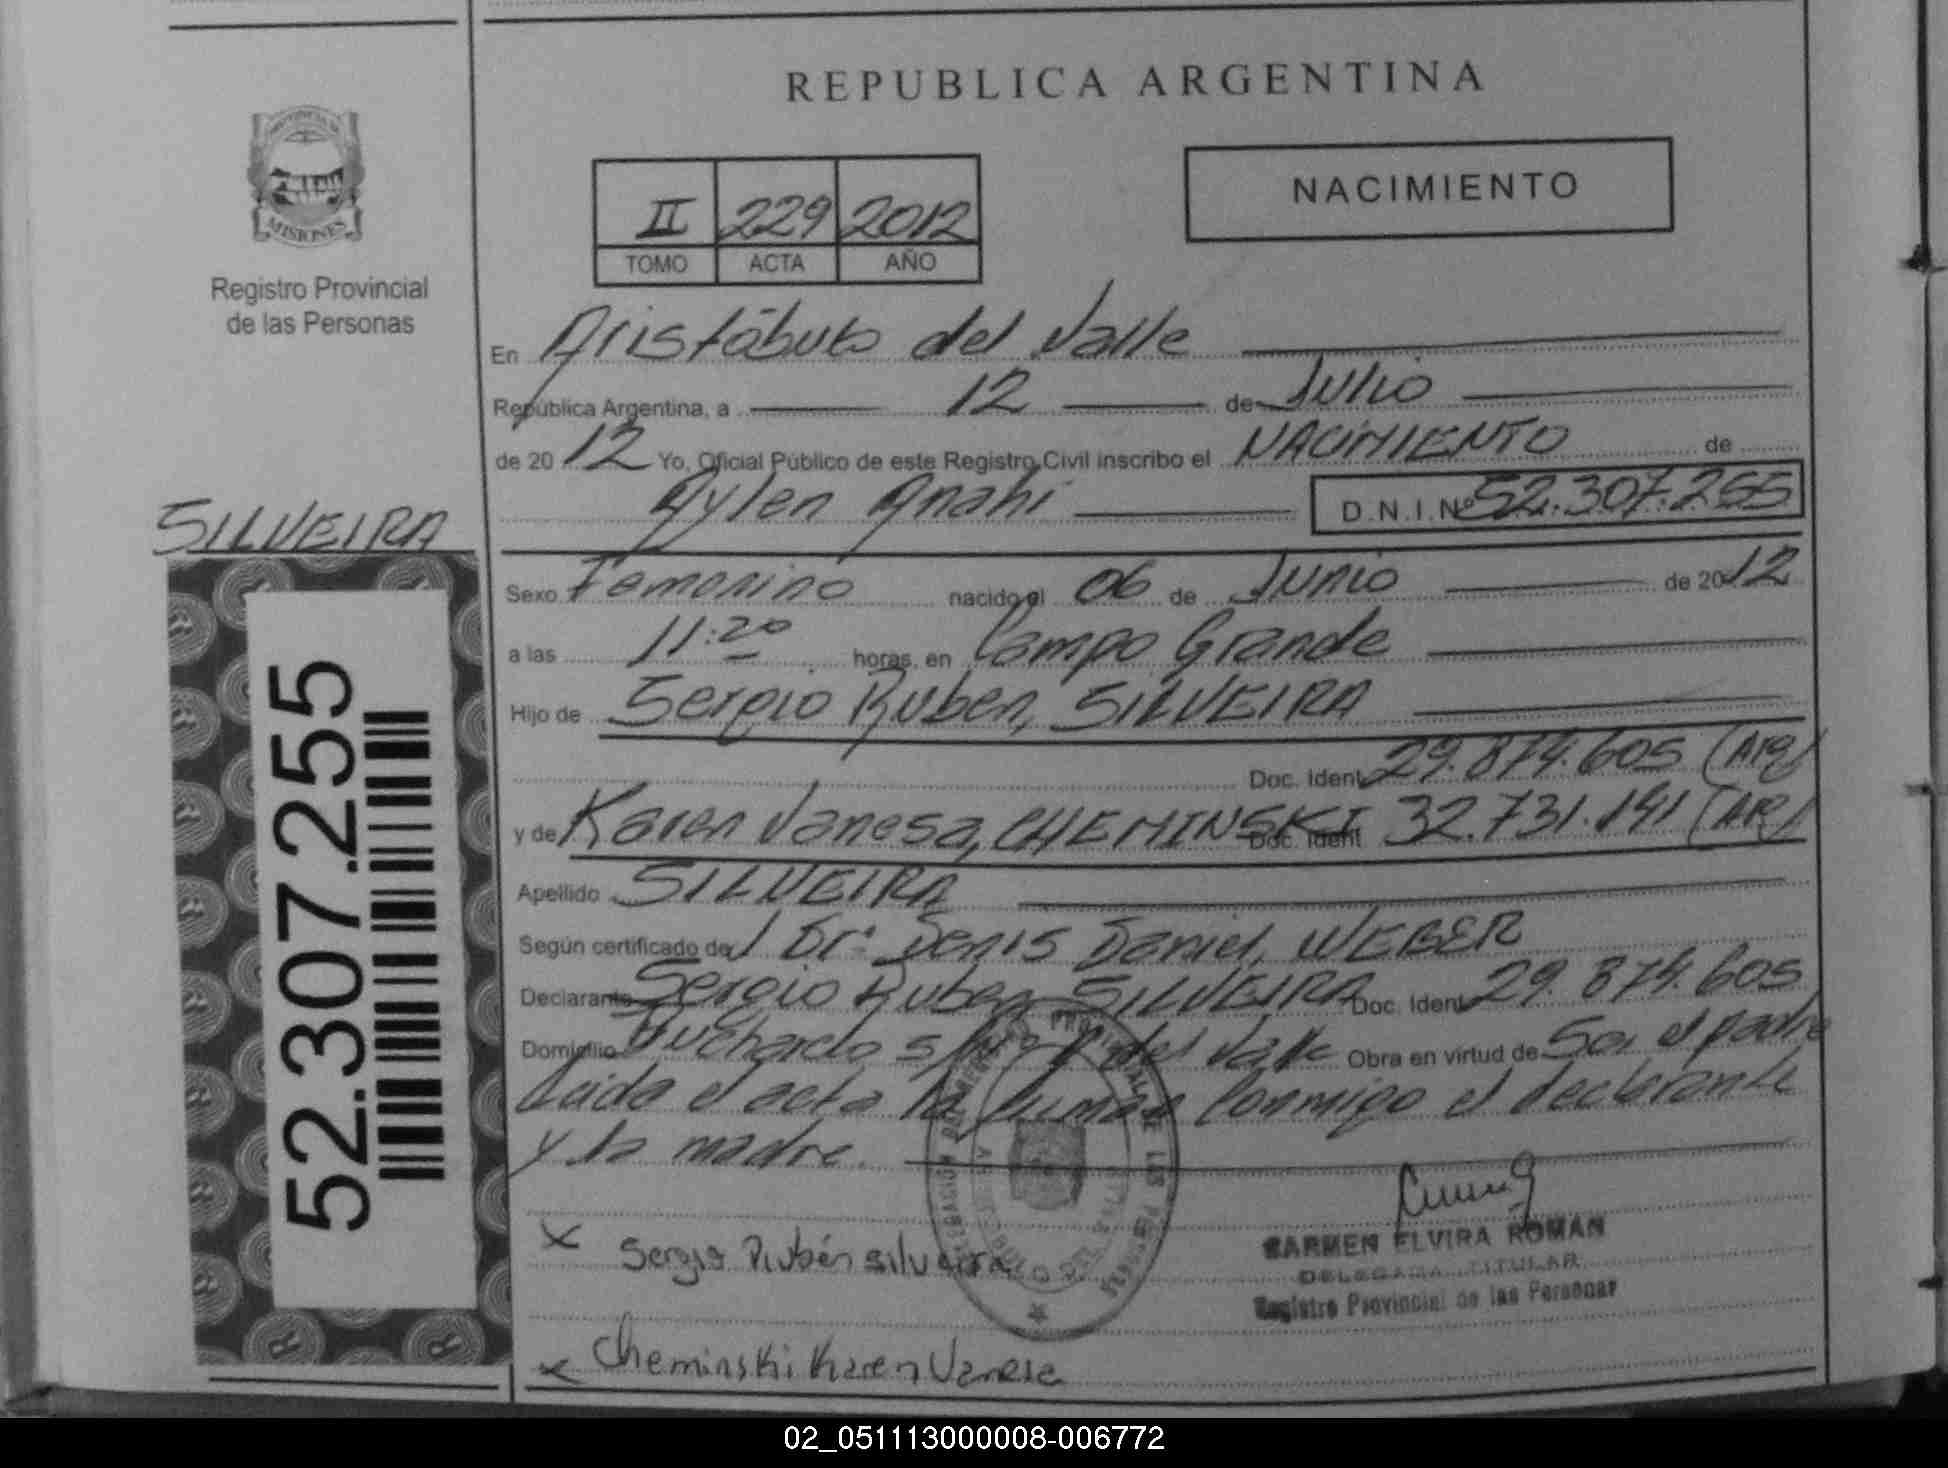 REPUBLICA ARGENTINA
PROVINCIA DE
MISIONES
Registro Provincial
de las Personas
II 229 2012
TOMO ACTA AÑO
NACIMIENTO
En Aristóbulo del Valle
República Argentina, a 12 de Julio
de 2012 Yo, Oficial Público de este Registro Civil inscribo el NACIMIENTO de
Aylen Anahi D.N.I.Nº 52.307.255
SILVEIRA
52.307.255
Sexo Femenino nacido el 06 de Junio de 2012
a las 11:20 horas, en Campo Grande
Hijo de Sergio Ruben, SILVEIRA
Doc. Ident 29.874.605 (Arg)
y de Karen Vanesa, CHEMINSKI Doc. Ident 32.731.191 (AR)
Apellido SILVEIRA
Según certificado del Dr. Denis Daniel, WEBER
Declarante Sergio Ruben SILVEIRA Doc. Ident 29.874.605
Domicilio s/nº A. del Valle Obra en virtud de Ser el padre
Leida el acta la firman Conmigo el declarante
y la madre.
X Sergio Rubén Silveira
CARMEN ELVIRA ROMAN
DELEGADA TITULAR
Registro Provincial de las Personas
x Cheminski Karen Vanesa
02_051113000008-006772